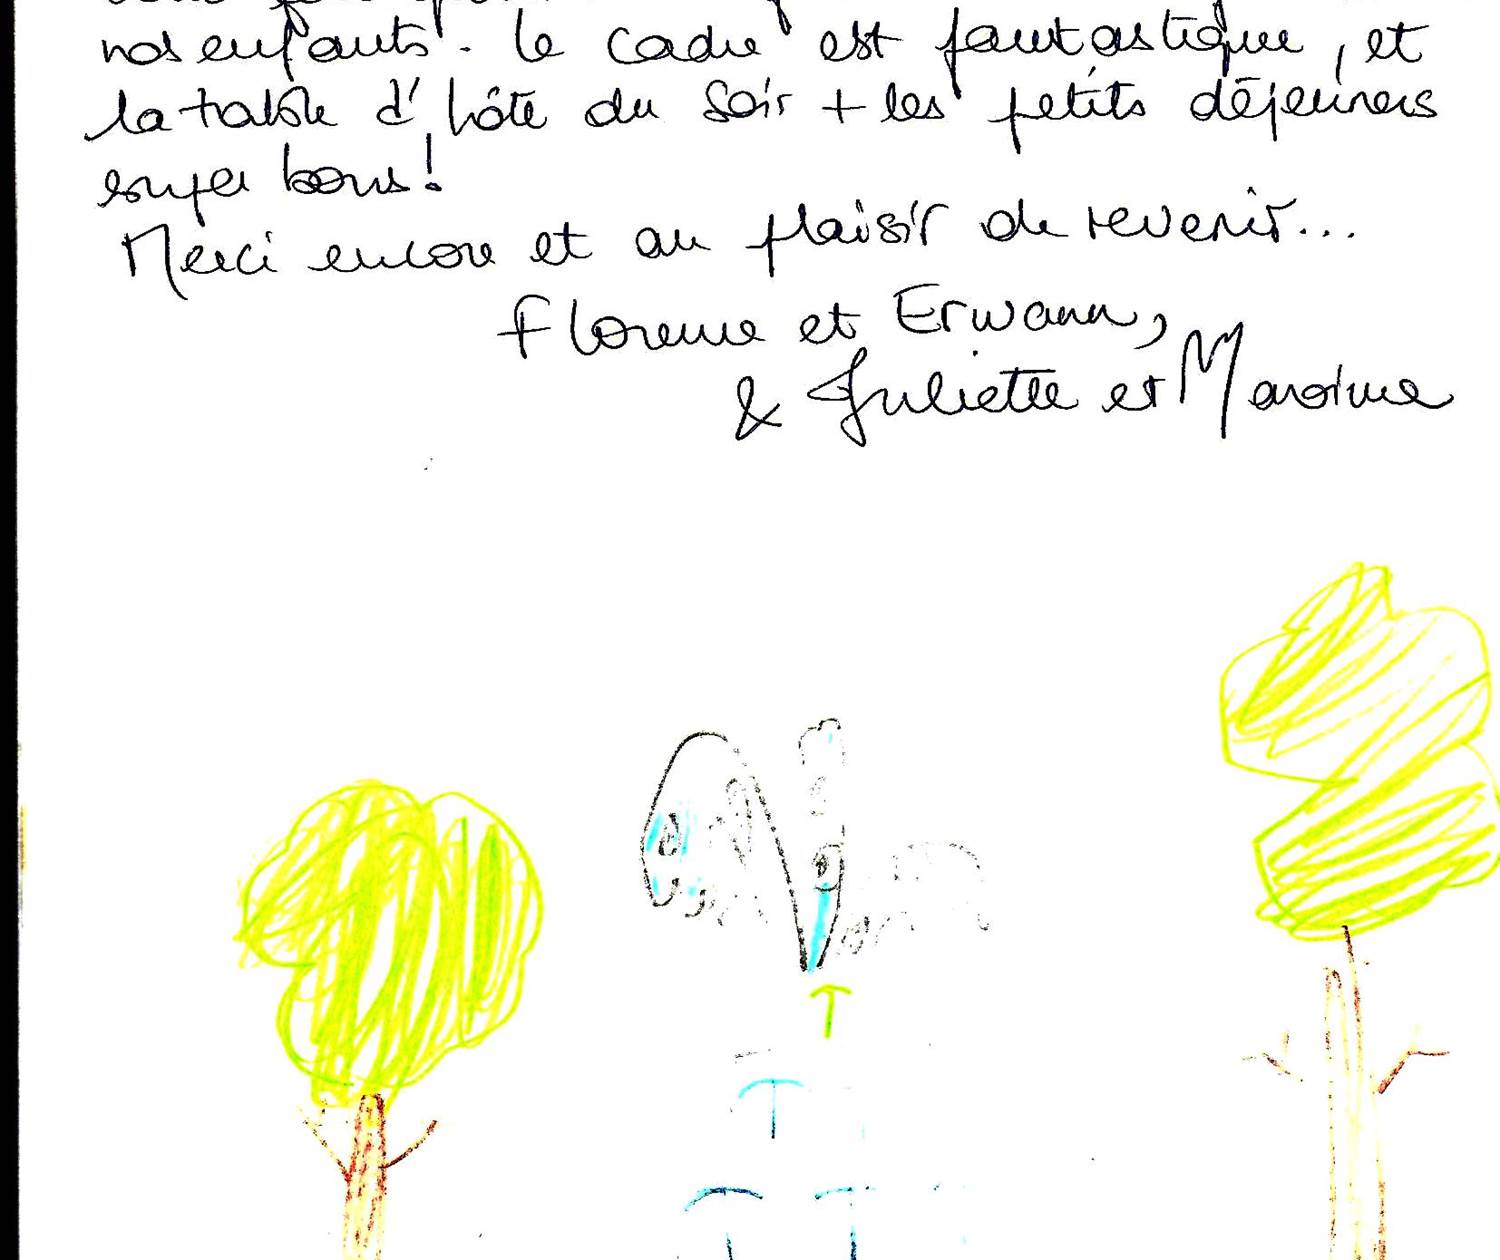 nos enfants. Le cadre est fantastique, et
la table d'hôte du soir + les petits déjeuners
super bons!
Merci encore et au plaisir de revenir...
Florence et Erwann,
& Juliette et Maxime